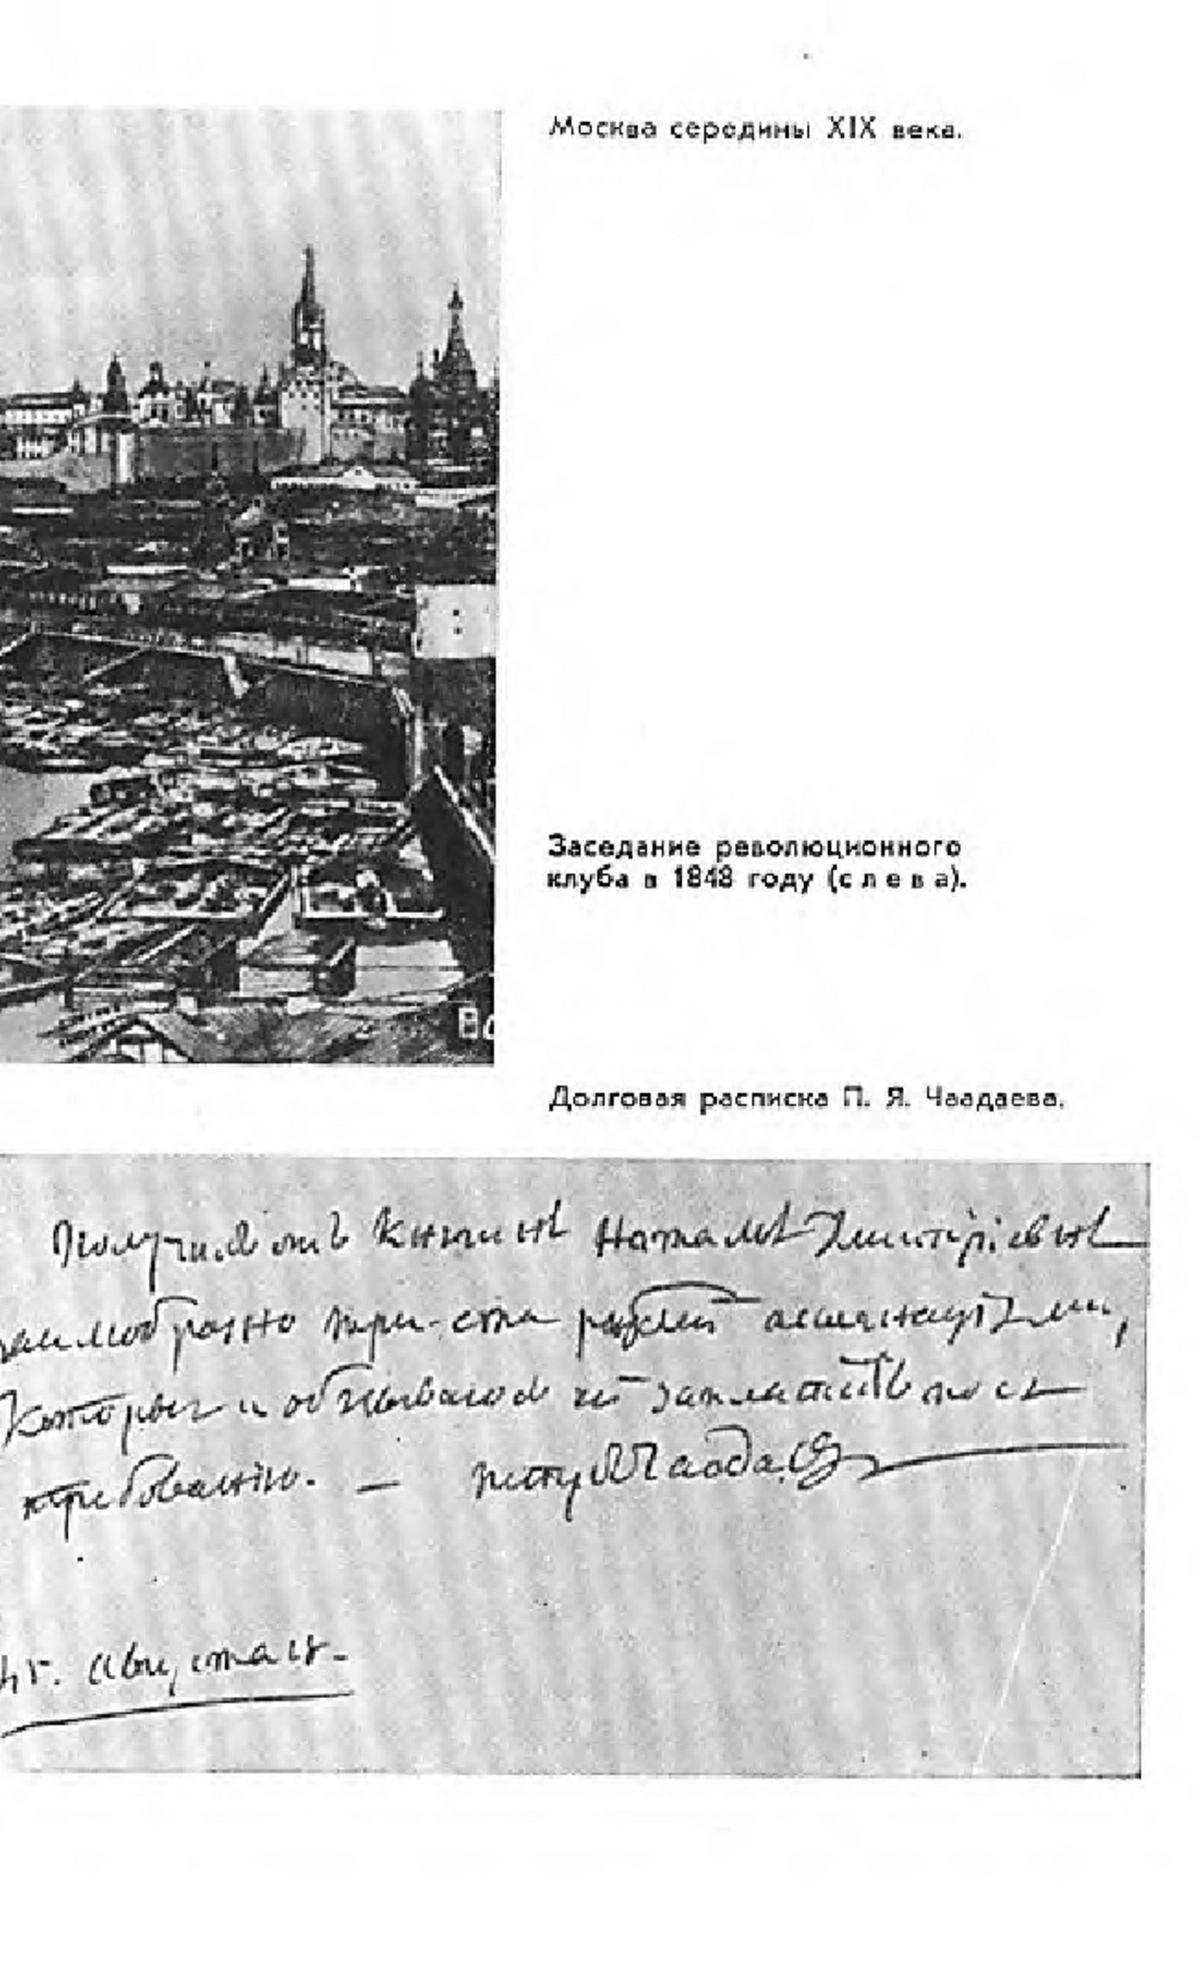 Москва середины XIX века.
Заседание революционного
клуба в 1848 году (слева).
Долговая расписка П. Я. Чаадаева.
Получилъ отъ Княгинѣ Натальѣ Дмитріевнѣ
три-ста рублей ассигнаціями,
Которые и обязываюсь ей заплатить по ея
требованію. — Петръ Чаадаев
августа